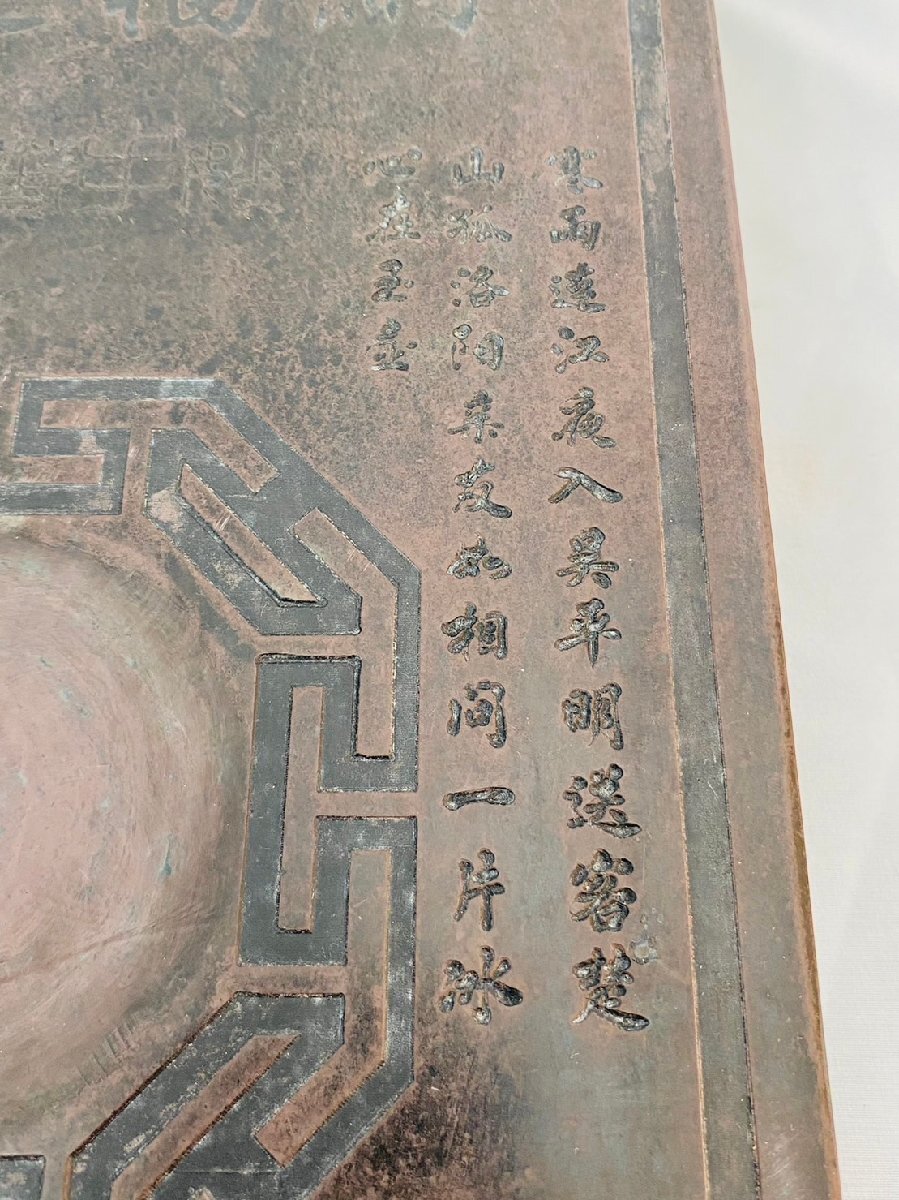 寒雨連江夜入吴平明送客楚
山孤洛阳亲友如相问一片冰
心在玉壶